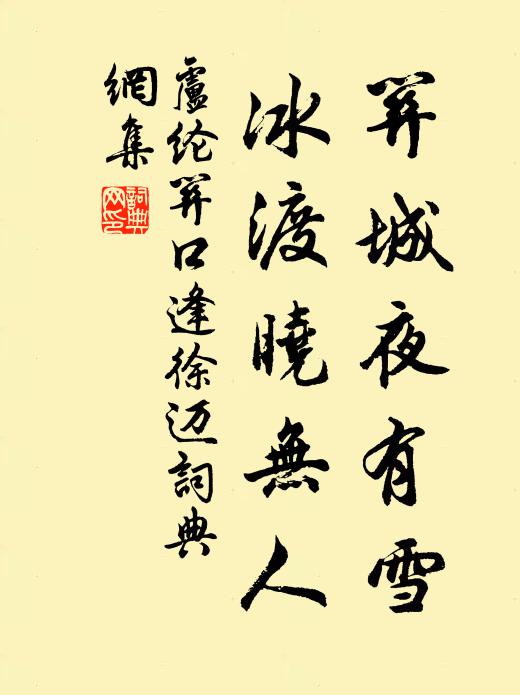 关城夜有雪
冰渡曉無人
盧纶关口逢徐迈詞典
網集
詞典
网印